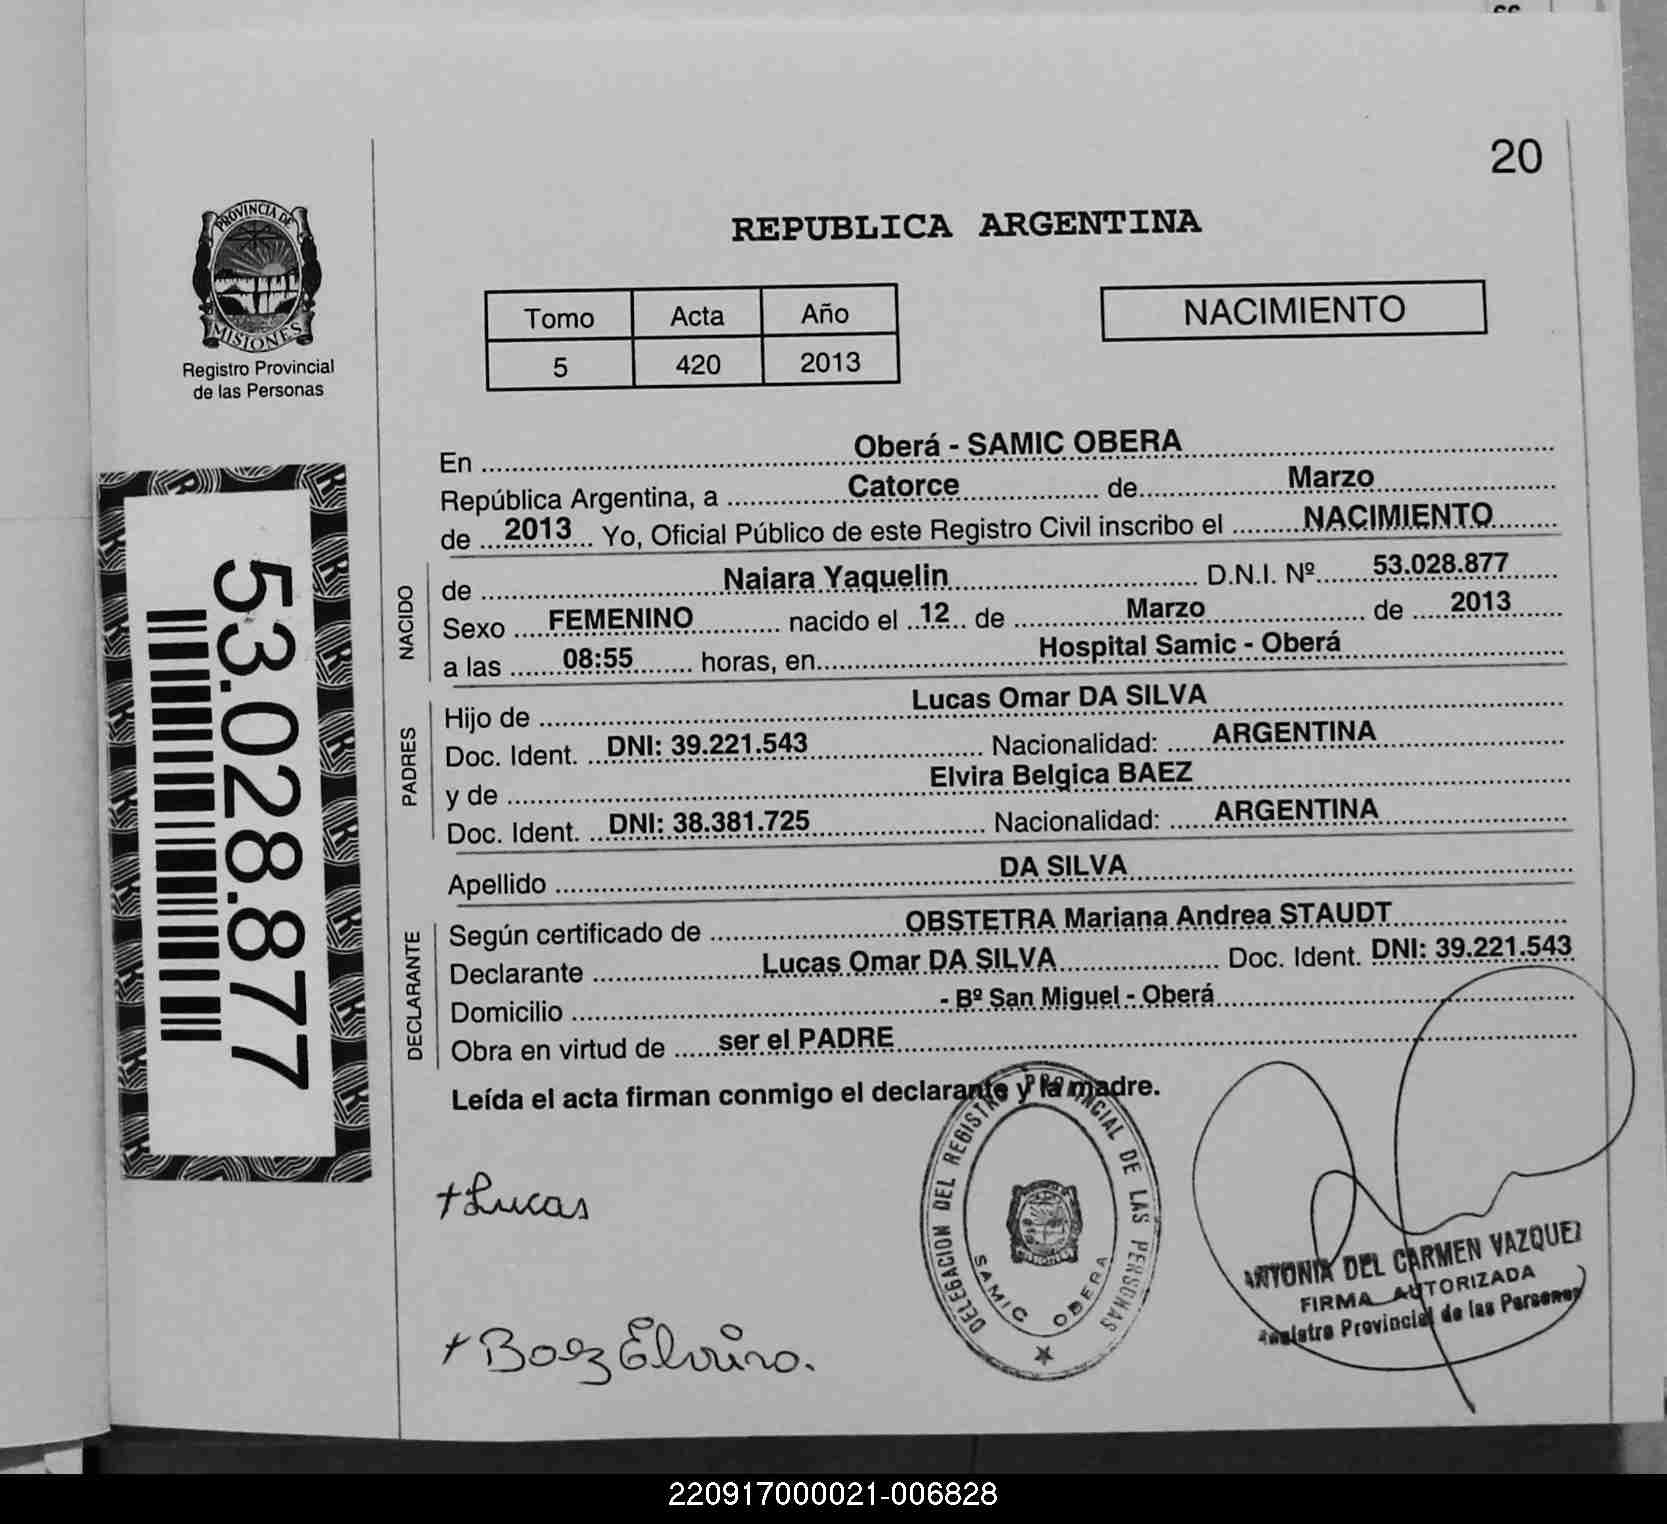 20
PROVINCIA DE
MISIONES
Registro Provincial
de las Personas
REPUBLICA ARGENTINA
Tomo Acta Año
5 420 2013
NACIMIENTO
53.028.877
En Oberá - SAMIC OBERA
República Argentina, a Catorce de Marzo
de 2013 Yo, Oficial Público de este Registro Civil inscribo el NACIMIENTO
NACIDO
de Naiara Yaquelin D.N.I. Nº 53.028.877
Sexo FEMENINO nacido el 12 de Marzo de 2013
a las 08:55 horas, en Hospital Samic - Oberá
PADRES
Hijo de Lucas Omar DA SILVA
Doc. Ident. DNI: 39.221.543 Nacionalidad: ARGENTINA
y de Elvira Belgica BAEZ
Doc. Ident. DNI: 38.381.725 Nacionalidad: ARGENTINA
Apellido DA SILVA
DECLARANTE
Según certificado de OBSTETRA Mariana Andrea STAUDT
Declarante Lucas Omar DA SILVA Doc. Ident. DNI: 39.221.543
Domicilio - Bº San Miguel - Oberá
Obra en virtud de ser el PADRE
Leída el acta firman conmigo el declarante y la madre.
+Lucas
+ Baez Elvira.
DELEGACION DEL REGISTRO PROVINCIAL DE LAS PERSONAS
SAMIC OBERA
ANTONIA DEL CARMEN VAZQUEZ
FIRMA AUTORIZADA
Registro Provincial de las Personas
220917000021-006828